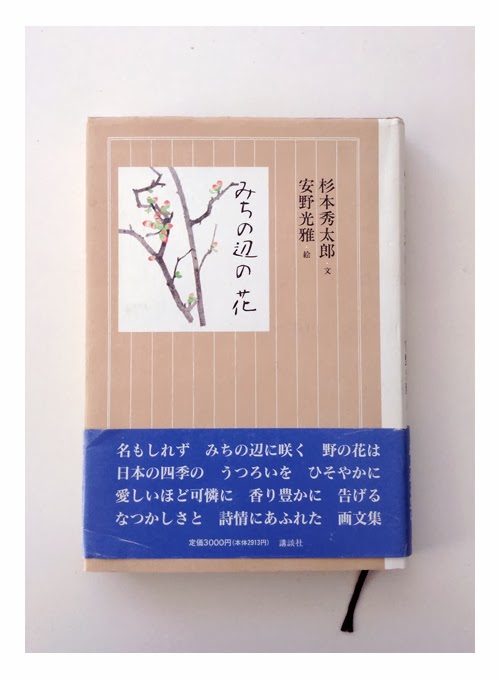 杉本秀太郎・文
安野光雅・絵
みちの辺の花
名もしれず みちの辺に咲く 野の花は
日本の四季の うつろいを ひそやかに
愛しいほど可憐に 香り豊かに 告げる
なつかしさと 詩情にあふれた 画文集
定価3000円(本体2913円) 講談社